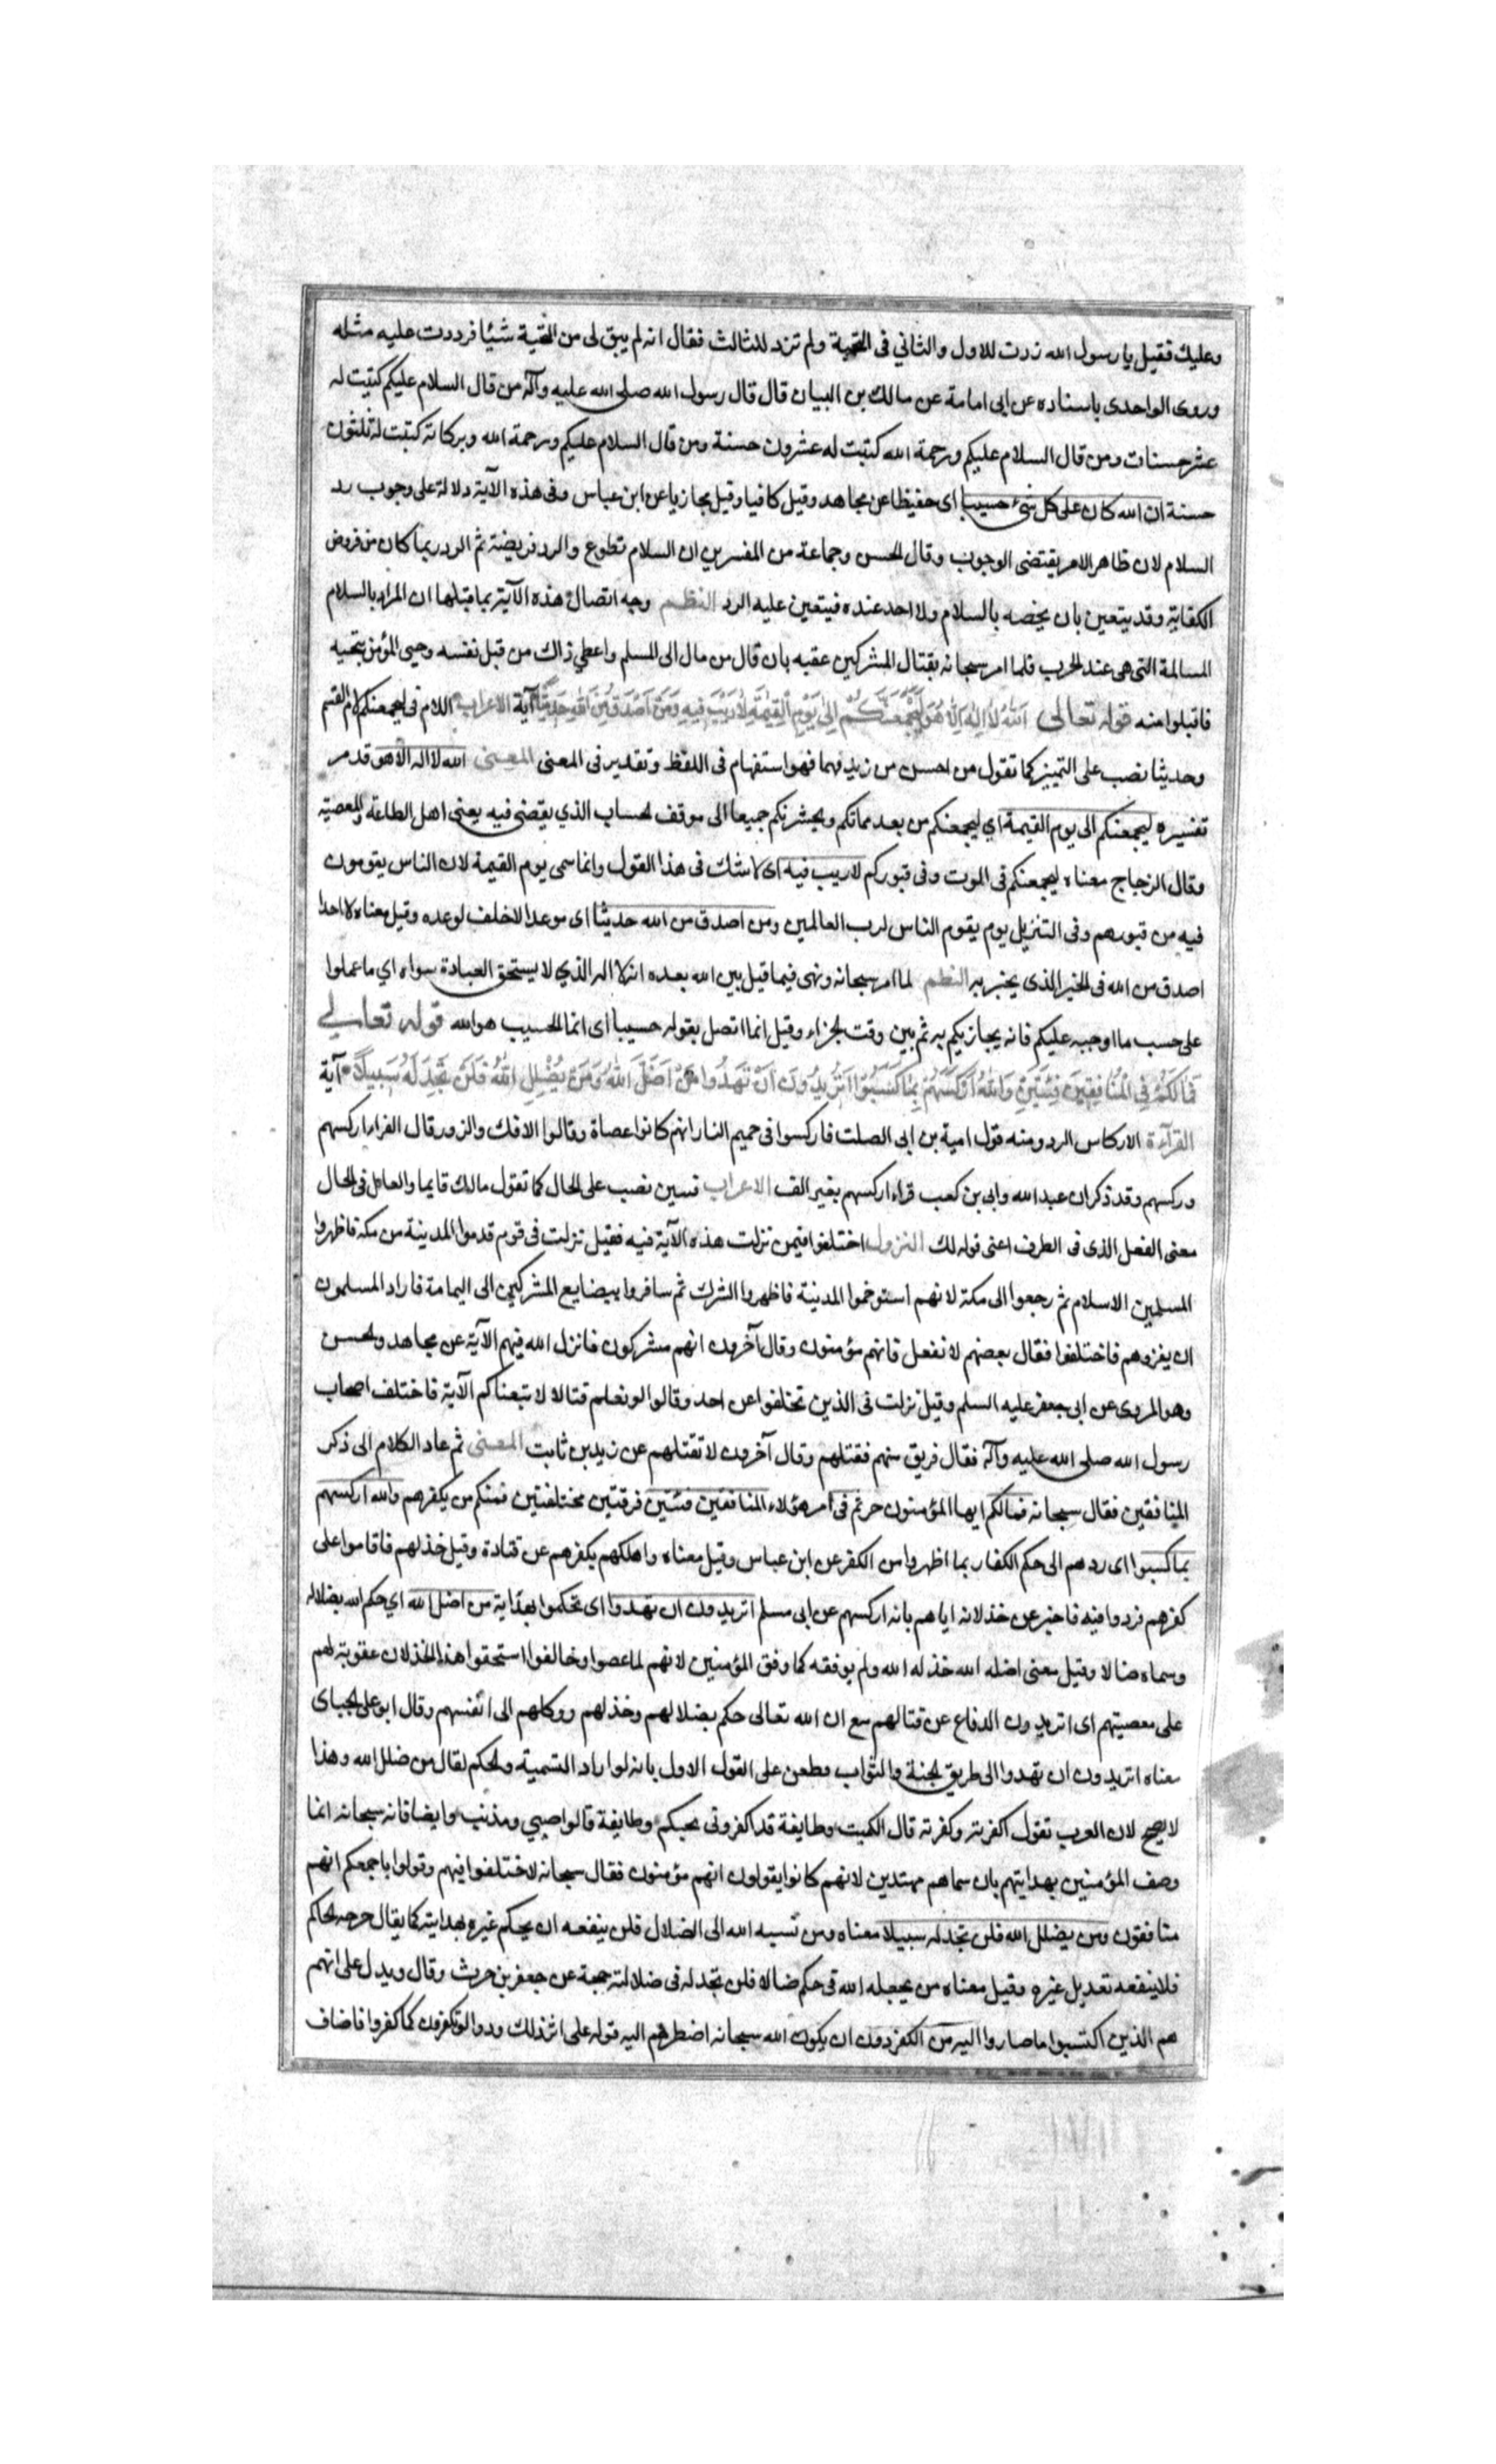 وعليك فقيل يا رسول الله زدت للاول والثاني فى التحية ولم تزد للثالث فقال انه لم يبق لى من التحية شيئا فرددت عليه مثله
وروى الواحدى باسناده عن ابى امامة عن مالك بن البيان قال قال رسول الله صلى الله عليه وآله من قال السلام عليكم كتبت له
عشر حسنات ومن قال السلام عليكم ورحمة الله كتبت له عشرون حسنة ومن قال السلام عليكم ورحمة الله وبركاته كتبت له ثلثون
حسنة ان الله كان على كل شئ حسيبا اى حفيظا عن مجاهد وقيل كافيا وقيل مجازيا عن ابن عباس وفى هذه الآية دلالة على وجوب رد
السلام لان ظاهر الامر يقتضى الوجوب وقال الحسن وجماعة من المفسرين ان السلام تطوع والرد فريضة ثم الرد ربما كان من فروض
الكفاية وقد يتعين بان يخصه بالسلام ولا احد عنده فيتعين عليه الرد النظم وجه اتصال هذه الآية بما قبلها ان المراد بالسلام
المسالمة التى هى عند الحرب فلما امر سبحانه بقتال المشركين عقبه بان قال من مال الى السلم واعطى ذاك من قبل نفسه وحيى المؤمن بتحية
فاقبلوا منه قوله تعالى اَللّٰهُ لاَ اِلٰهَ اِلاَّ هُوَ لَيَجْمَعَنَّكُمْ اِلىٰ يَوْمِ الْقِيٰمَةِ لاَ رَيْبَ فِيهِ وَمَنْ اَصْدَقُ مِنَ اللّٰهِ حَدِيثًا آية الاعراب اللام فى ليجمعنكم لام القسم
وحديثا نصب على التمييز كما تقول من احسن من زيد فهما فهو استفهام فى اللفظ وتقدير فى المعنى المعنى الله لا اله الا هو قد مر
تفسيره ليجمعنكم الى يوم القيمة اي ليجمعنكم من بعد مماتكم ويحشرنكم جميعا الى موقف الحساب الذي يقضى فيه يعنى اهل الطاعة والمعصية
وقال الزجاج معناه ليجمعنكم فى الموت وفى قبوركم لا ريب فيه اى لا شك فى هذا القول وانما سمى يوم القيمة لان الناس يقومون
فيه من قبورهم وفى التنزيل يوم يقوم الناس لرب العالمين ومن اصدق من الله حديثا اى موعدا لا خلف لوعده وقيل معناه لا احد
اصدق من الله فى الخبر الذى يخبر به النظم لما امر سبحانه ونهى فيما قيل بين الله بعده انه لا اله الذي لا يستحق العبادة سواه اي ما عملوا
على حسب ما اوجبه عليكم فانه يجازيكم به ثم بين وقت الجزاء وقيل انما اتصل بقوله حسيبا اى انما الحسيب هو الله قوله تعالى
فَمَا لَكُمْ فِي الْمُنَافِقِينَ فِئَتَيْنِ وَاللهُ اَرْكَسَهُمْ بِمَا كَسَبُوْا اَتُرِيدُونَ اَنْ تَهْدُوا مَنْ اَضَلَّ اللهُ وَمَنْ يُضْلِلِ اللهُ فَلَنْ تَجِدَ لَهُ سَبِيلاً آية
القرآءة الاركاس الرد ومنه قول امية بن ابى الصلت فاركسوا فى حميم النار انهم كانوا عصاة وقالوا الافك والزور قال الفراء اركسهم
وركسهم وقد ذكر ان عبد الله وابى بن كعب قراء اركسهم بغير الف الاعراب فئتين نصب على الحال كما تقول مالك قايما والعامل فى الحال
معنى الفعل الذى فى الظرف اعنى قوله لك النزول اختلفوا فيمن نزلت هذه الآية فيه فقيل نزلت فى قوم قدموا المدينة من مكة فاظهروا
المسلمين الاسلام ثم رجعوا الى مكة لانهم استوخموا المدينة فاظهروا الشرك ثم سافروا ببضايع المشركين الى اليمامة فاراد المسلمون
ان يغزوهم فاختلفوا فقال بعضهم لا نفعل فانهم مؤمنون وقال آخرون انهم مشركون فانزل الله فيهم الآية عن مجاهد والحسن
وهو المروى عن ابى جعفر عليه السلم وقيل نزلت فى الذين تخلفوا عن احد وقالوا لو نعلم قتالا لاتبعناكم الآية فاختلف اصحاب
رسول الله صلى الله عليه وآله فقال فريق منهم فقتلهم وقال آخرون لا تقتلهم عن زيد بن ثابت المعنى ثم عاد الكلام الى ذكر
المنافقين فقال سبحانه فمالكم ايها المؤمنون حرتم فى امر هؤلاء المنافقين فئتين فرقتين مختلفتين فمنكم من يكفرهم والله اركسهم
بما كسبوا اى ردهم الى حكم الكفار بما اظهروا من الكفر عن ابن عباس وقيل معناه واهلكهم بكفرهم عن قتادة وقيل خذلهم فاقاموا على
كفرهم فردوا فيه فاخبر عن خذلانه اياهم بانه اركسهم عن ابى مسلم اتريدون ان تهدوا اى تحكموا بهداية من اضل الله اي حكم الله بضلاله
وسماه ضالا وقيل معنى اضله الله خذله الله ولم يوفقه كما وفق المؤمنين لانهم لما عصوا وخالفوا استحقوا هذا الخذلان عقوبة لهم
على معصيتهم اى اتريدون الدفاع عن قتالهم مع ان الله تعالى حكم بضلالهم وخذلهم ووكلهم الى انفسهم وقال ابو على الجباى
معناه اتريدون ان تهدوا الى طريق الجنة والثواب وطعن على القول الاول بانه لو اراد التسمية والحكم لقال من ضلل الله وهذا
لا يصح لان العرب تقول اكفرته وكفرته قال الكميت وطايفة قد اكفرونى بحبكم وطايفة قالوا صيبي ومذنب وايضا فانه سبحانه انما
وصف المؤمنين بهدايتهم بان سماهم مهتدين لانهم كانوا يقولون انهم مؤمنون فقال سبحانه لا تختلفوا فيهم وقولوا باجمعكم انهم
منافقون ومن يضلل الله فلن تجد له سبيلا معناه ومن نسبه الله الى الضلال فلن ينفعه ان يحكم غيره بهدايته كما يقال جرحه الحاكم
فلا ينفعه تعديل غيره وقيل معناه من يجعله الله فى حكم ضالا فلن تجد له فى ضلالته حجة عن جعفر بن حرث وقال ويدل على انهم
هم الذين اكتسبوا ما صاروا اليه من الكفر دون ان يكون الله سبحانه اضطرهم اليه قوله على اثر ذلك ودوا لو تكفرون كما كفروا فاضاف